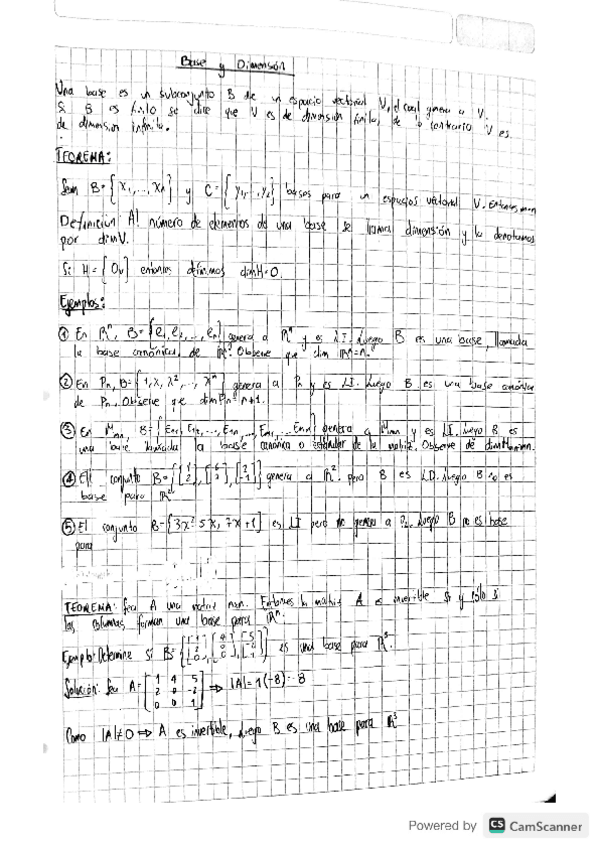 Base y Dimensión
Una base es un subconjunto B de un espacio vectorial V, el cual genera a V.
Si B es finito se dice que V es de dimensión finita, de lo contrario V es
de dimensión infinita.
TEOREMA:
Sean B={x₁,...,xₙ} y C={y₁,...,yᵣ} bases para un espacios vectorial V. Entonces
Definición: Al número de elementos de una base se llama dimensión y la denotamos
por dimV.
Si H={0v} entonces definimos dimH=0.
Ejemplos:
① En Rⁿ, B={e₁,e₂,...,eₙ} genera a Rⁿ y es LI. Luego B es una base, llamada
la base canónica, de Rⁿ. Observe que dim Rⁿ=n.
② En Pn, B={1,x,x²,...,xⁿ} genera a Pn y es LI. Luego B es una base canónica
de Pn, Observe que dimPn=n+1.
③ En Mmn, genera a Mmn y es LI. luego B es
una base llamada la base canónica o estándar de la matriz. Observe
④ El conjunto genera a R². pero B es L.D. Luego B no es
base para R²
⑤ El conjunto B={3x² 5x, 7x+1} es LI pero no genera a P₂. Luego B no es base
para
TEOREMA: Sea A una matriz nxn. Entonces la matriz A es invertible si y sólo si
las columnas forman una base para Rⁿ.
Ejemplo: Determine si B= es una base para
Solución: Sea A= [1 4 5
2 0 -2
0 0 1] ⇒ |A|=1(-8)=-8
Como |A|≠0 ⇒ A es invertible, Luego B es una base para R³
Powered by CS CamScanner